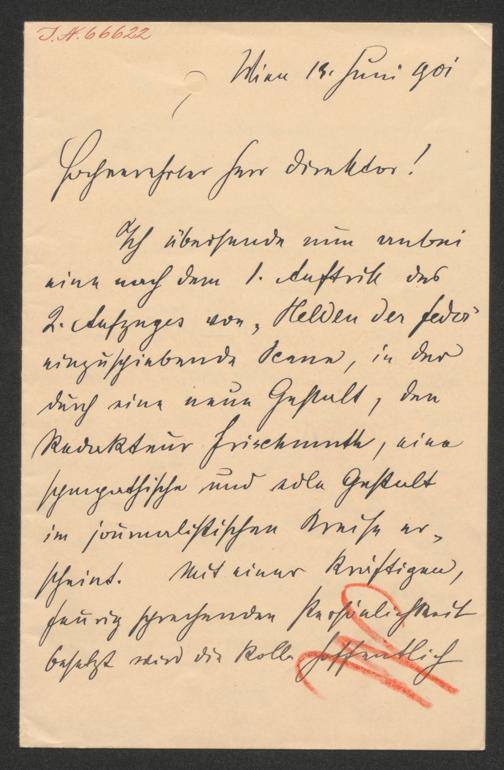 I.N. 66622
Wien 13. Juni 901
Hochverehrter Herr Direktor!
Ich übersende nun anbei
eine nach dem 1. Auftritt des
2. Aufzuges von „Helden der Feder“
einzuschiebende Scene, in der
durch eine neue Gestalt, den
Redakteur Frischmuth, eine
sympathische und edle Gestalt
im journalistischen Kreise er-
scheint. Mit einer kräftigen,
feurig sprechenden Persönlichkeit
besetzt wird die Rolle hoffentlich